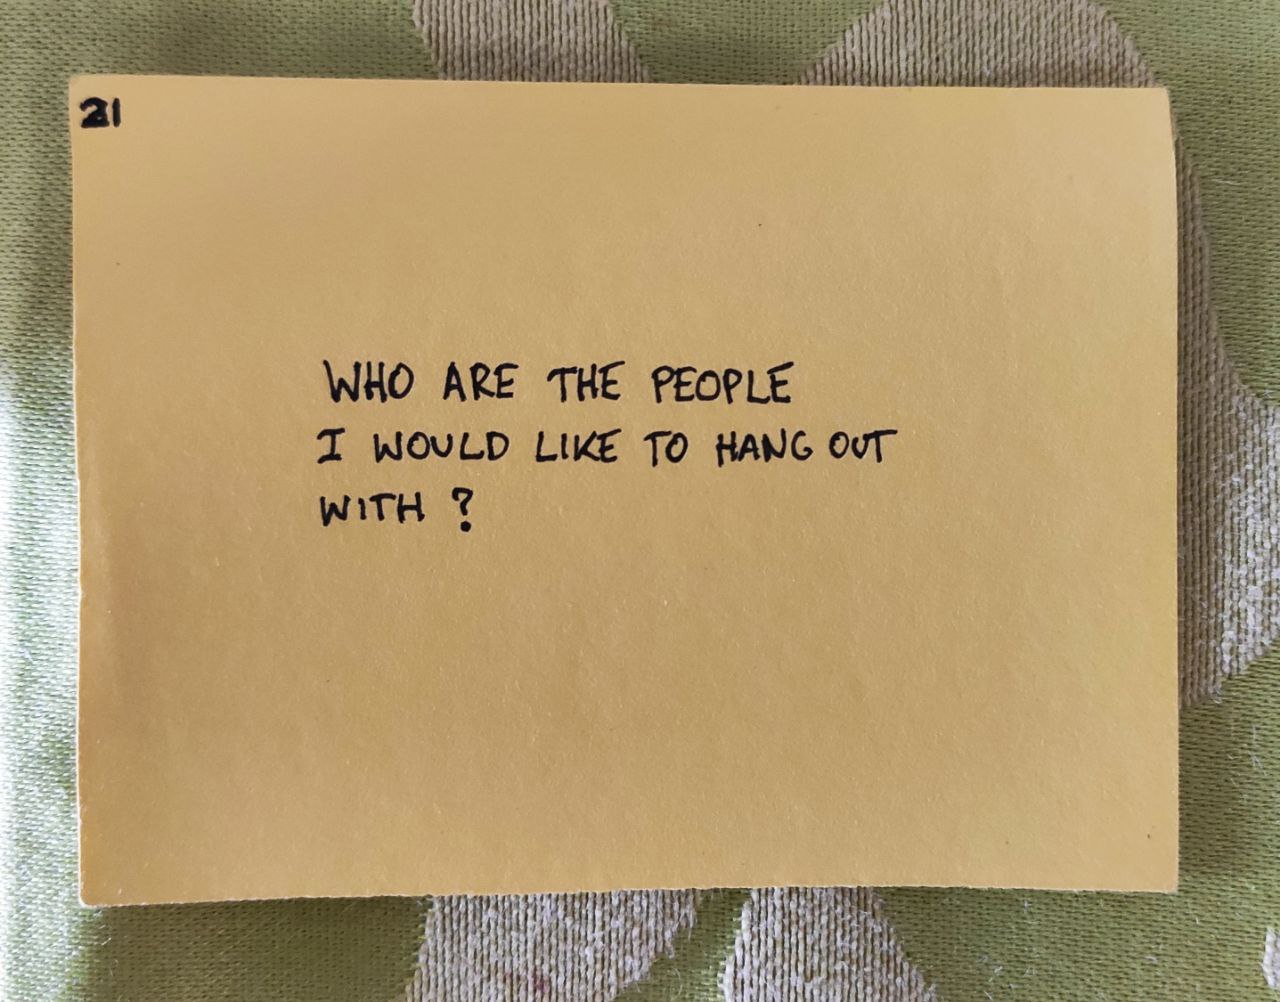 21
WHO ARE THE PEOPLE
I WOULD LIKE TO HANG OUT
WITH ?